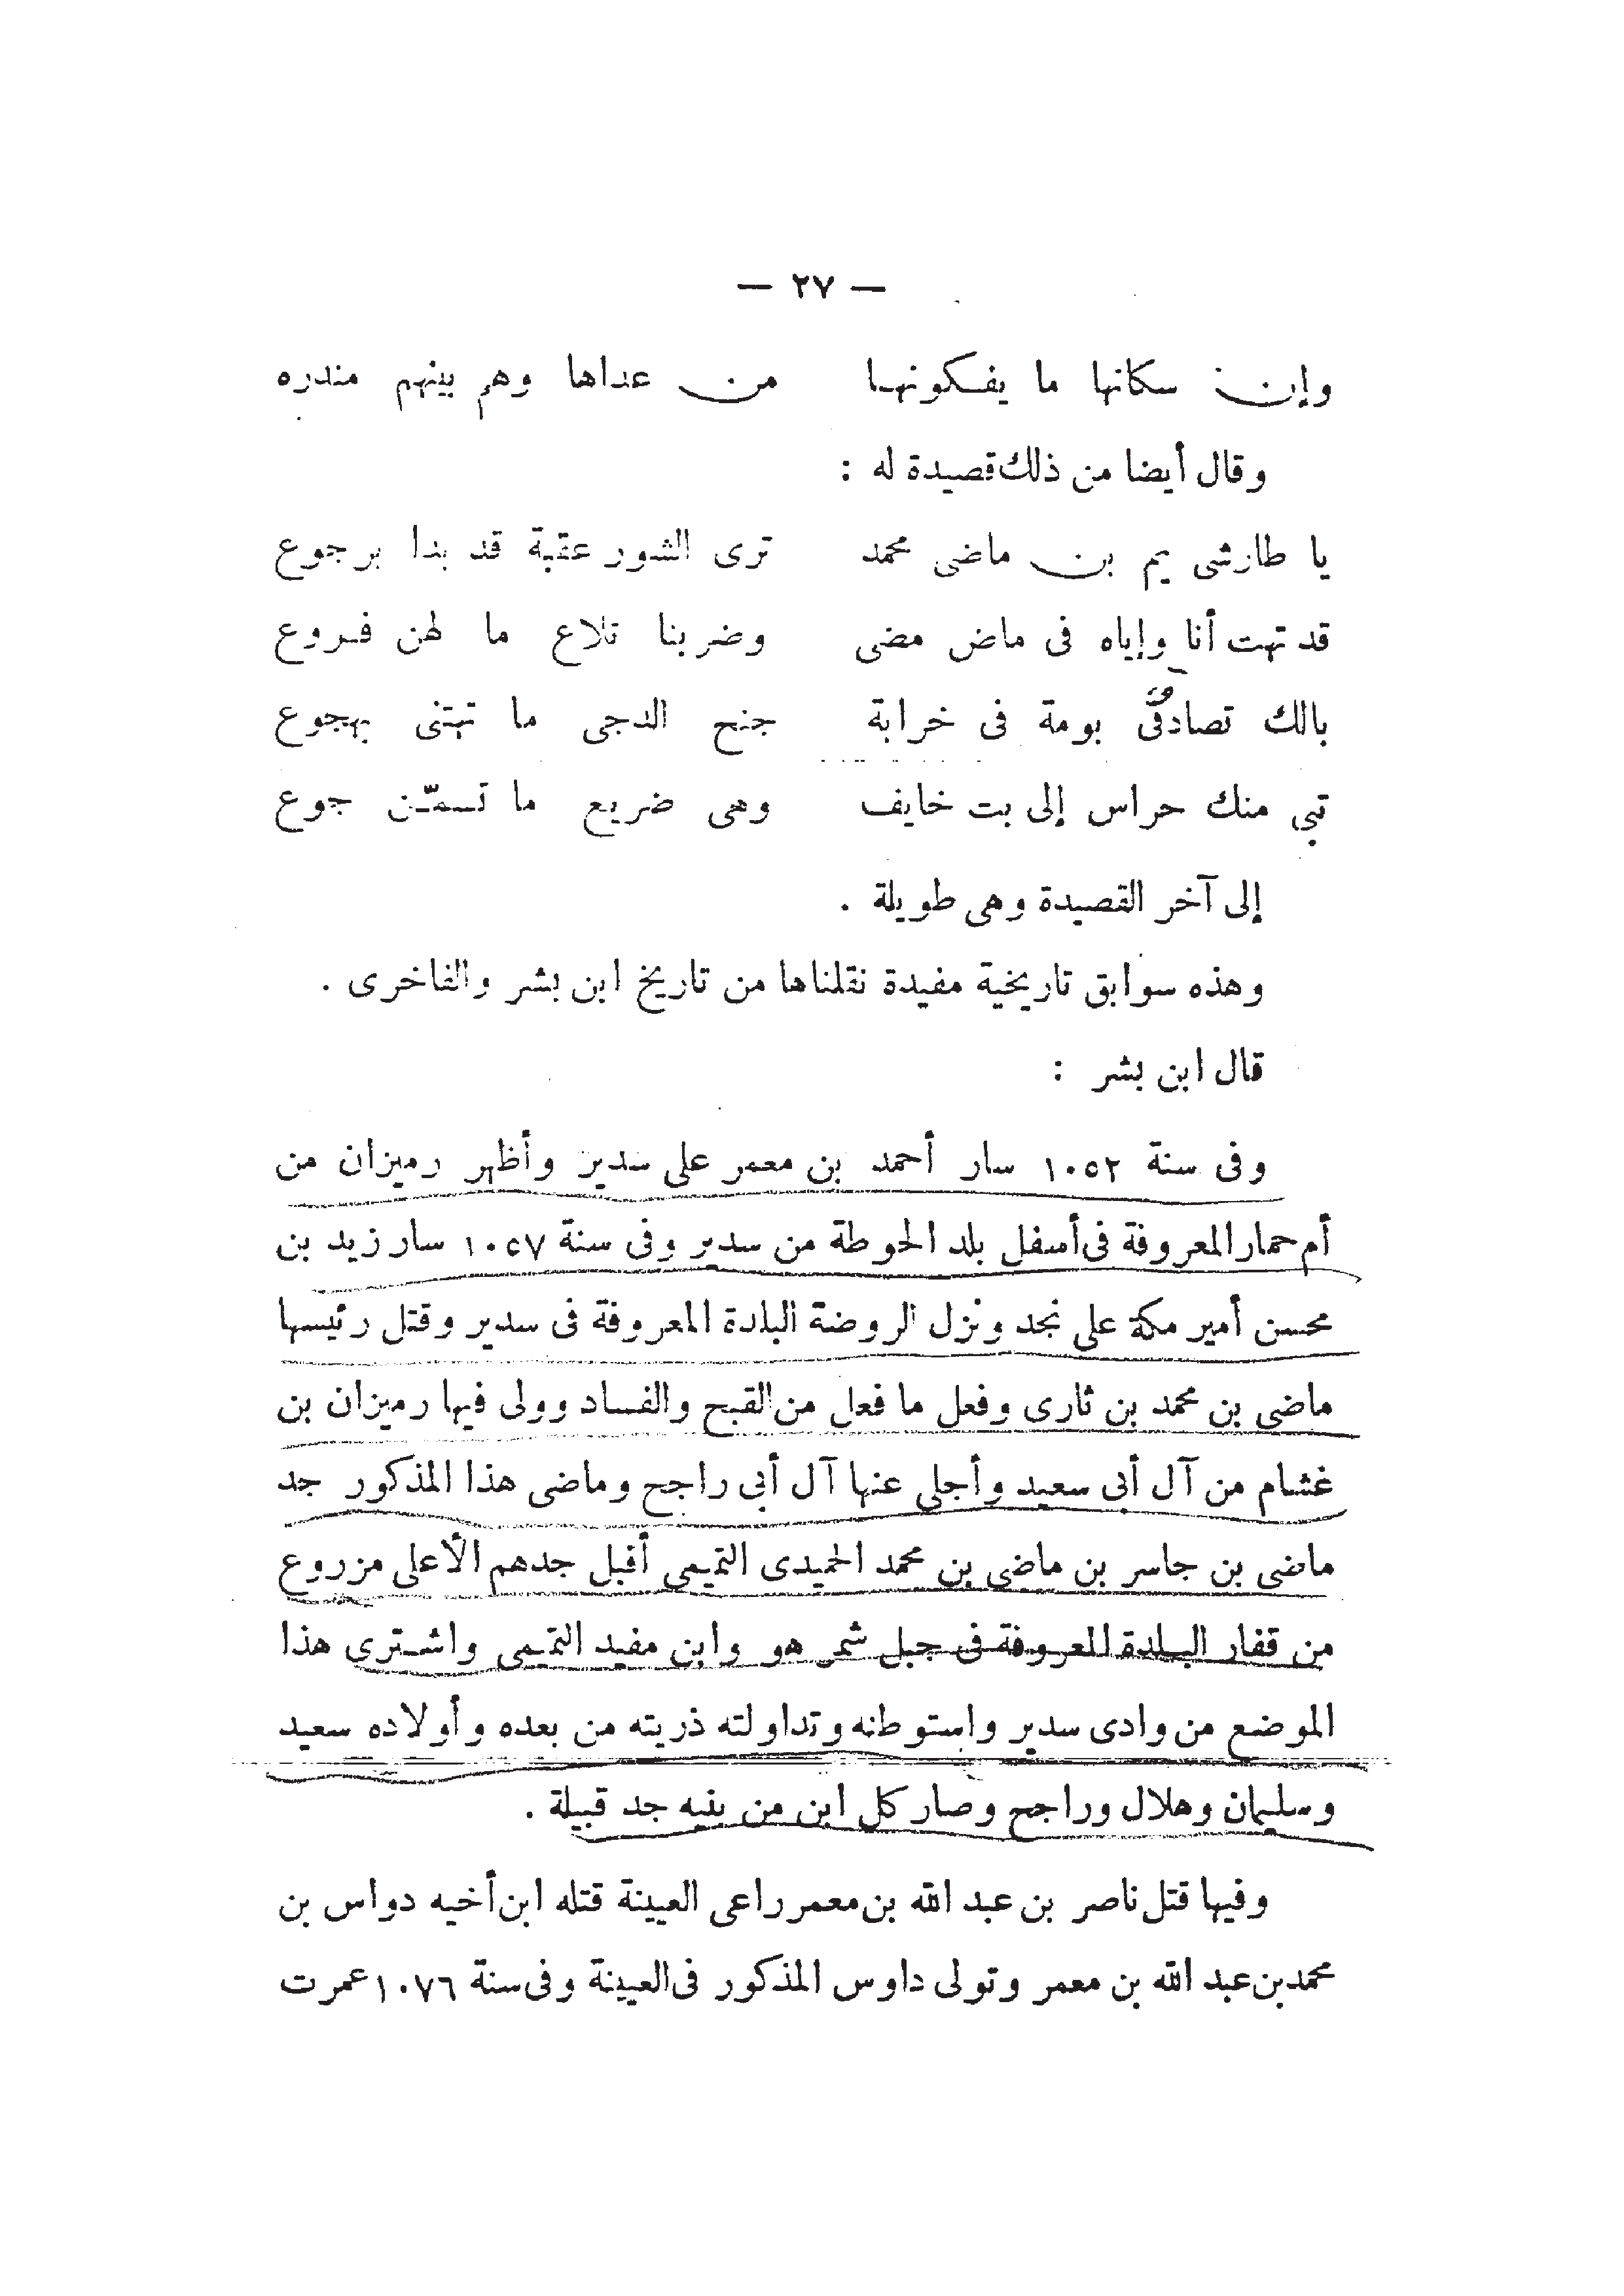 — ٢٧ —
وإن سكانها ما يفكونها من عداها وهم بينهم مندره
وقال أيضا من ذلك قصيدة له :
يا طارشى يم بن ماضى محمد ترى الشور عقبة قد بدا برجوع
قد تهت أنا وإياه فى ماض مضى وضربنا تلاع ما لهن فروع
بالك تصادق بومة فى خرابة جنح الدجى ما تهتنى بهجوع
تبي منك حراس إلى بت خايف وهى ضريع ما تسمّن جوع
إلى آخر القصيدة وهى طويلة .
وهذه سوابق تاريخية مفيدة نقلناها من تاريخ ابن بشر والفاخرى .
قال ابن بشر :
وفى سنة ١٠٥٢ سار أحمد بن معمر على سدير وأظهر رميزان من
أم حمار المعروفة فى أسفل بلد الحوطة من سدير وفى سنة ١٠٥٧ سار زيد بن
محسن أمير مكة على نجد ونزل الروضة البلدة المعروفة فى سدير وقتل رئيسها
ماضى بن محمد بن ثارى وفعل ما فعل من القبح والفساد وولى فيها رميزان بن
غشام من آل أبى سعيد وأجلى عنها آل أبى راجح وماضى هذا المذكور جد
ماضى بن جاسر بن ماضى بن محمد الحميدى التميمى أقبل جدهم الأعلى مزروع
من قفار البلدة المعروفة فى جبل شمر هو وابن مفيد التميمى واشترى هذا
الموضع من وادى سدير واستوطنه وتداولته ذريته من بعده وأولاده سعيد
وسليمان وهلال وراجح وصار كل ابن من بنيه جد قبيلة .
وفيها قتل ناصر بن عبد الله بن معمر راعى العيينة قتله ابن أخيه دواس بن
محمد بن عبد الله بن معمر وتولى داوس المذكور فى العيينة وفى سنة ١٠٧٦ عمرت